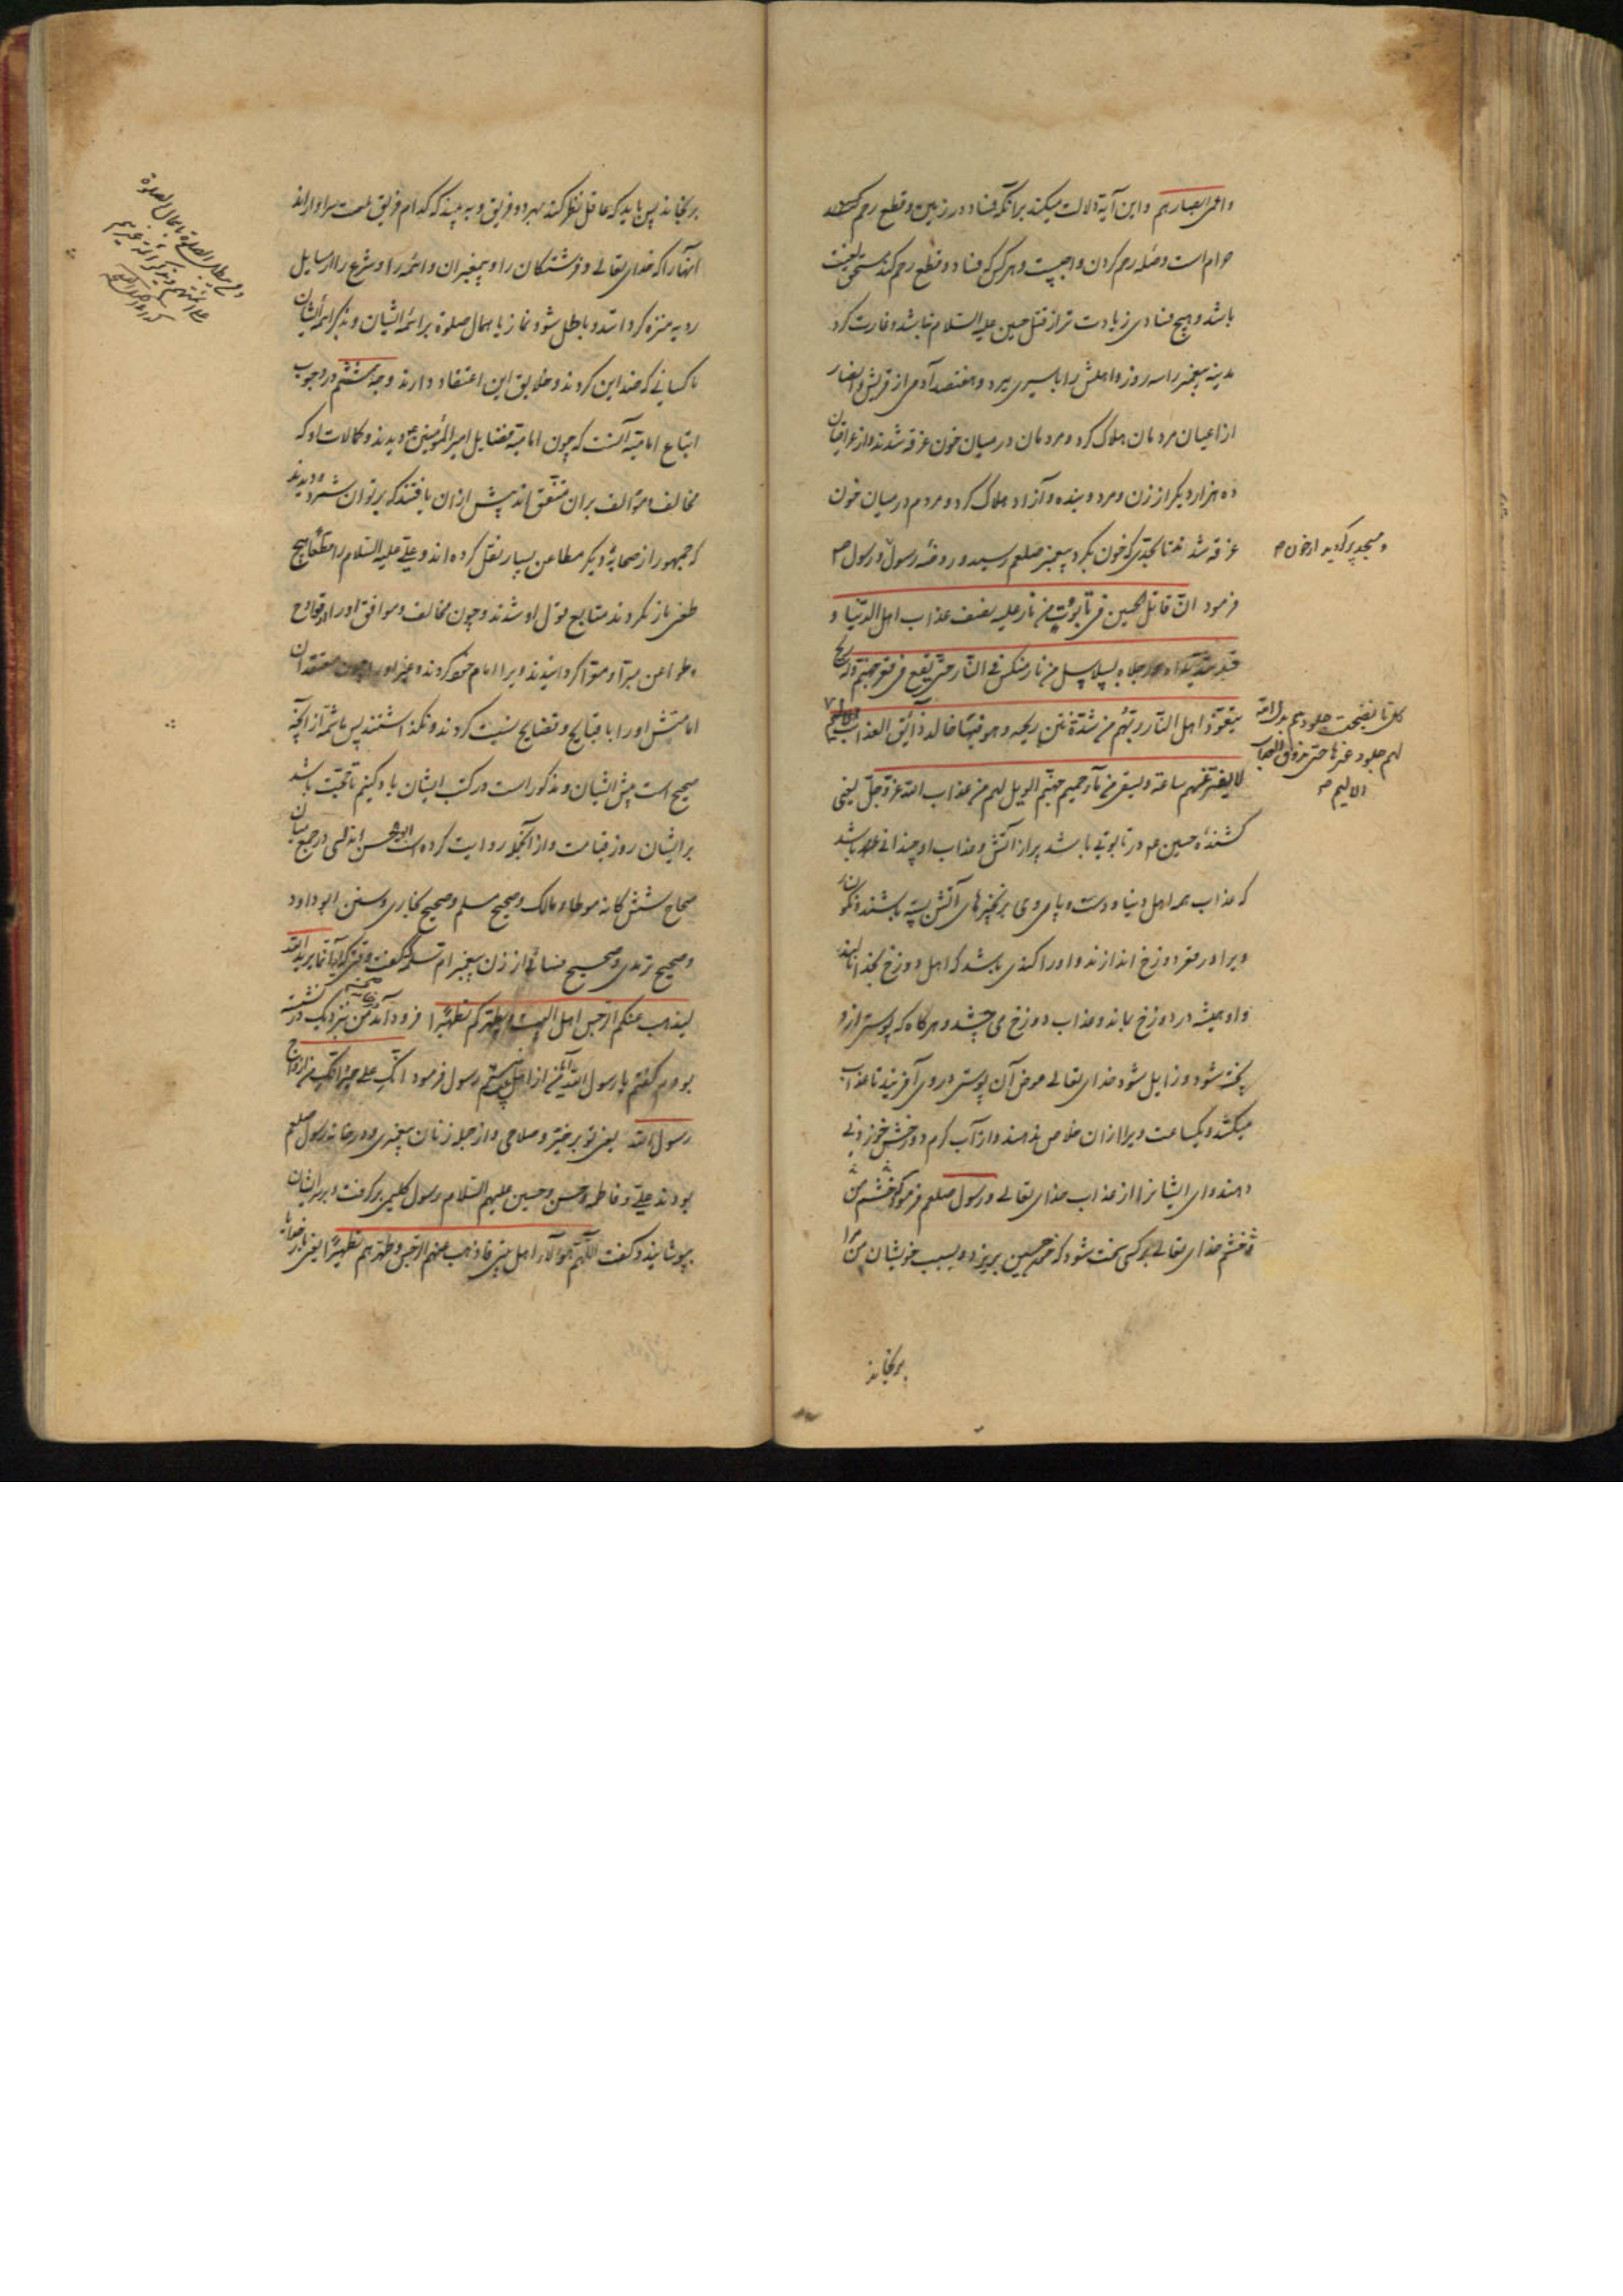 واعمی ابصارهم واین آیة دلالت میکند برآنکه فساد در زمین وقطع رحم کردن
حرام است وصله رحم کردن واجبست وهر کس که فساد وقطع رحم کند مستحق لعنت
باشد وهیچ فسادی زیادت تر از قتل حسین علیه السلام نباشد وغارت کرد
مدینه پیغمبر را سه روز واهلش را باسیری ببرد وهفتصد آدمی از قریش وانصار
از اعیان مردمان هلاک کرد ومردمان در میان خون غرقه شدند واز
ده هزار دیگر از زن ومرد وبنده وآزاد هلاک کرد ومردم در میان خون
غرقه شدند تا بحدی که خون بگرد پیغمبر صلعم رسید ودر روضه رسول ورسول
ومسجد پر گردید از خون
فرمود ان قاتل الحسین فی تابوت من نار علیه نصف عذاب اهل الدنیا و
قد شد یداه ورجلاه بسلاسل من نار منکس فی النار حتی یقع فی قعر جهنم وله ریح
یتعوذ اهل النار الی ربهم من شدة نتن ریحه وهو فیها خالد ذائق العذاب الالیم
کلما نضجت جلودهم بدل الله
لهم جلودا غیرها حتی یذوقوا العذاب
الالیم
لا یفتر عنهم ساعة ویسقی من نار حمیم جهنم الویل لهم من عذاب الله عز وجل یعنی
کشنده حسین در تابوتی باشد پر از آتش وعذاب او چندانی باشد
که عذاب همه اهل دنیا ودست وپای وی بزنجیرهای آتش بسته باشند ونگونسار
ویرا در قعر دوزخ اندازند واورا گندی باشد که اهل دوزخ بخدا نالند
واو همیشه در دوزخ بماند وعذاب دوزخ می چشد وهرگاه که پوستی از او
پخته شود وزایل شود خدای تعالی عوض آن پوستی در وی آفریند تا عذاب
میکشد ویکساعت ویرا از آن خلاص ندهند واز آب گرم دوزخش خورانی
دهند وای ایشانرا از عذاب خدای تعالی ورسول صلعم فرمود که خشم من
وخشم خدای تعالی بر کسی سخت شود که خون حسین بریزد وبسبب خویشان من مرا
برنجاند
برنجاند پس باید که عاقل نظر کند بهر دو فریق وبه بیند که کدام فریق بلعنت سزاوارند
آنها را که خدای تعالی وفرشتگان را وپیغمبران وائمه را وشرع را از مسایل
ردیه منزه گرداند وباطل شود نماز باهمال صلوة بر ائمه ایشان وبذکر ائمه ایشان
یا کسانی که ضد این کردند وخلایق این اعتقاد دارند وجه ششم در وجوب
اتباع امامیه آنست که چون امامیه فضایل امیر المؤمنین دیدند وکمالات او که
مخالف ومؤالف بر آن متفق اند بیش از آن یافتند که بر توان شمرد ودیدند
که جمهور از صحابه دیگر مطاعن بسیار نقل کرده اند وعلی علیه السلام را مطلقا هیچ
طعنی باز نکردند متابع قول او شدند وچون مخالف وموافق اورا از قوادح
وطواعن مبرا ومعرا گردانیدند ویرا امام خود کردند وغیر اورا چون معتقدان
امامتش اورا با قبایح وفضایح نسبت کردند ونگذاشتند پس ما شمه از آنچه
صحیح است پیش ایشان ومذکور است در کتب ایشان یاد کنیم تا حجت باشد
بر ایشان روز قیامت واز آنجمله روایت کرده است ابو الحسن اندلسی در جمع میان
صحاح ششگانه موطاء مالک وصحیح مسلم وصحیح بخاری وسنن ابو داود
وصحیح ترمدی وصحیح نسائی از زن پیغمبر ام سلمه که گفت وقتی که آیه انما یرید الله
لیذهب عنکم الرجس اهل البیت ویطهرکم تطهیرا فرود آمد من نزدیک در نشسته
بودم گفتم یا رسول الله من از اهل بیت نیستم رسول فرمود انک علی خیر انک من ازواج
رسول الله یعنی تو بر خیر وصلاحی واز جمله زنان پیغمبری ودر خانه رسول صلعم
بودند علی وفاطمه وحسن وحسین علیهم السلام رسول گلیمی برگرفت وبر ایشان
پوشانید وگفت اللهم هؤلاء اهل بیتی فاذهب عنهم الرجس وطهرهم تطهیرا یعنی بار خدایا